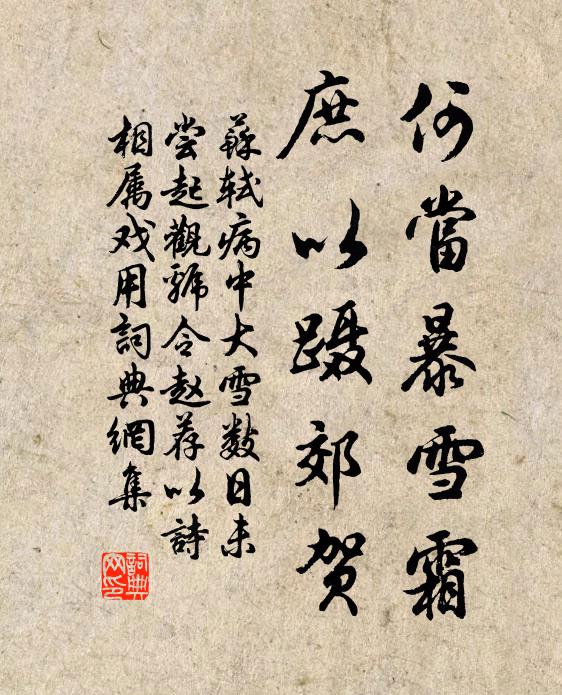 何當暴雪霜
庶以蹑郊贺
蘇軾病中大雪数日未
尝起觀虢令赵荐以詩
相属戏用詞典網集
詞典
网印